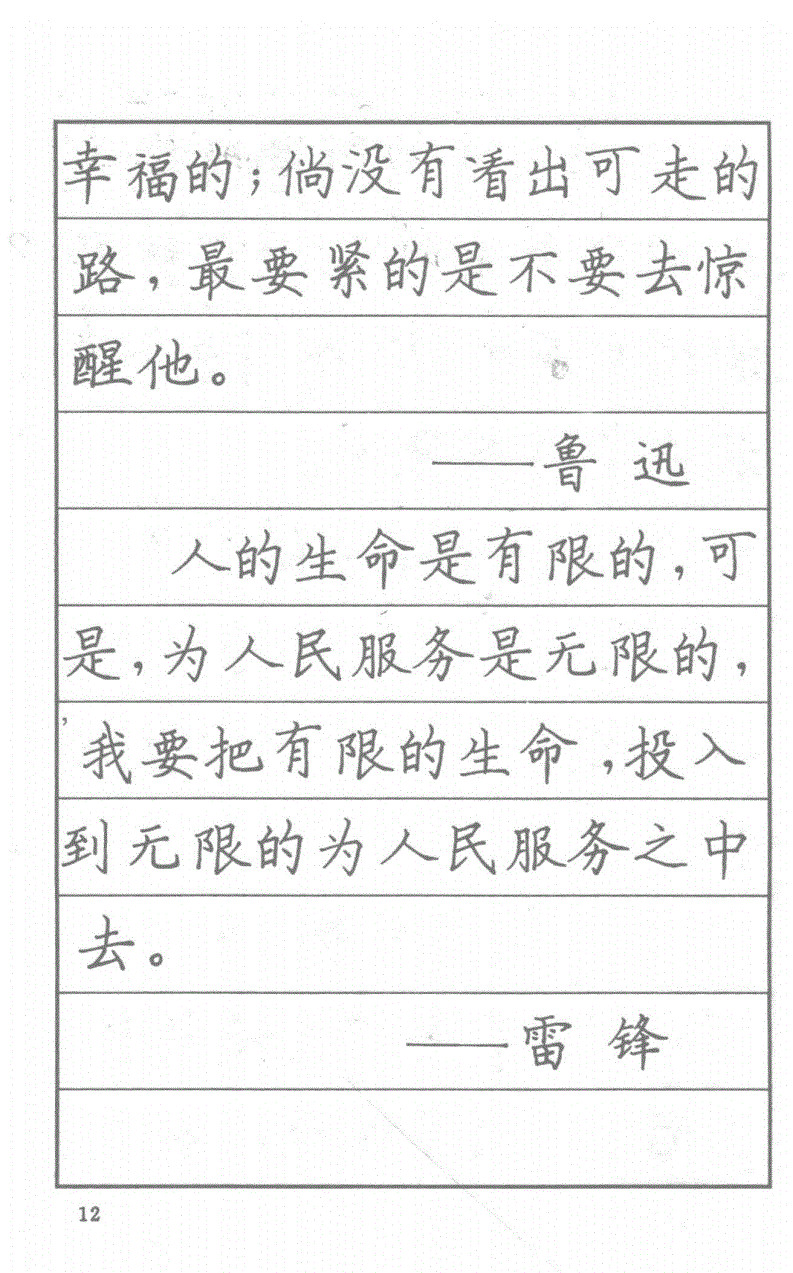 幸福的；倘没有看出可走的
路，最要紧的是不要去惊
醒他。
——鲁 迅
人的生命是有限的，可
是，为人民服务是无限的，
我要把有限的生命，投入
到无限的为人民服务之中
去。
——雷 锋
12